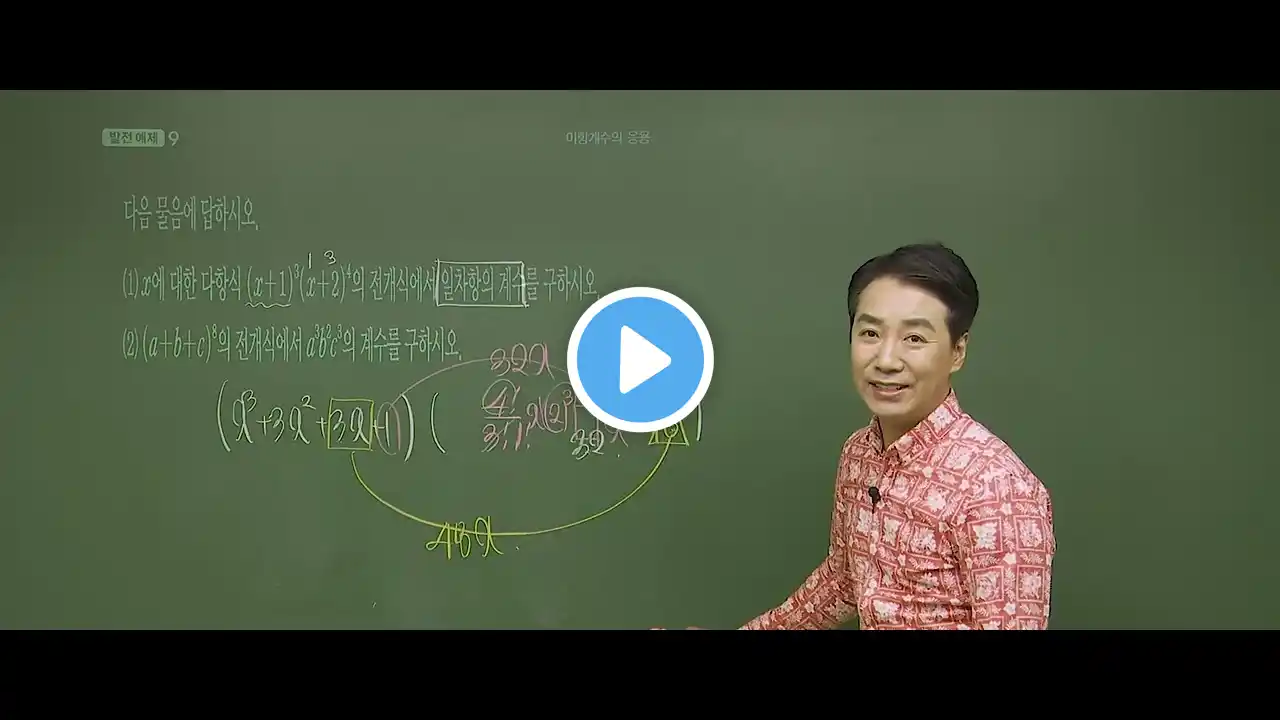 발전 예제 9
이항계수의 응용
다음 물음에 답하시오.
(1) x에 대한 다항식 (x+1)³(x+2)⁴의 전개식에서 일차항의 계수를 구하시오.
1 3
(2) (a+b+c)⁸의 전개식에서 a³b²c³의 계수를 구하시오.
32x
(x³+3x²+3x+1)( 4!/3!1! x(2)³
32
48x